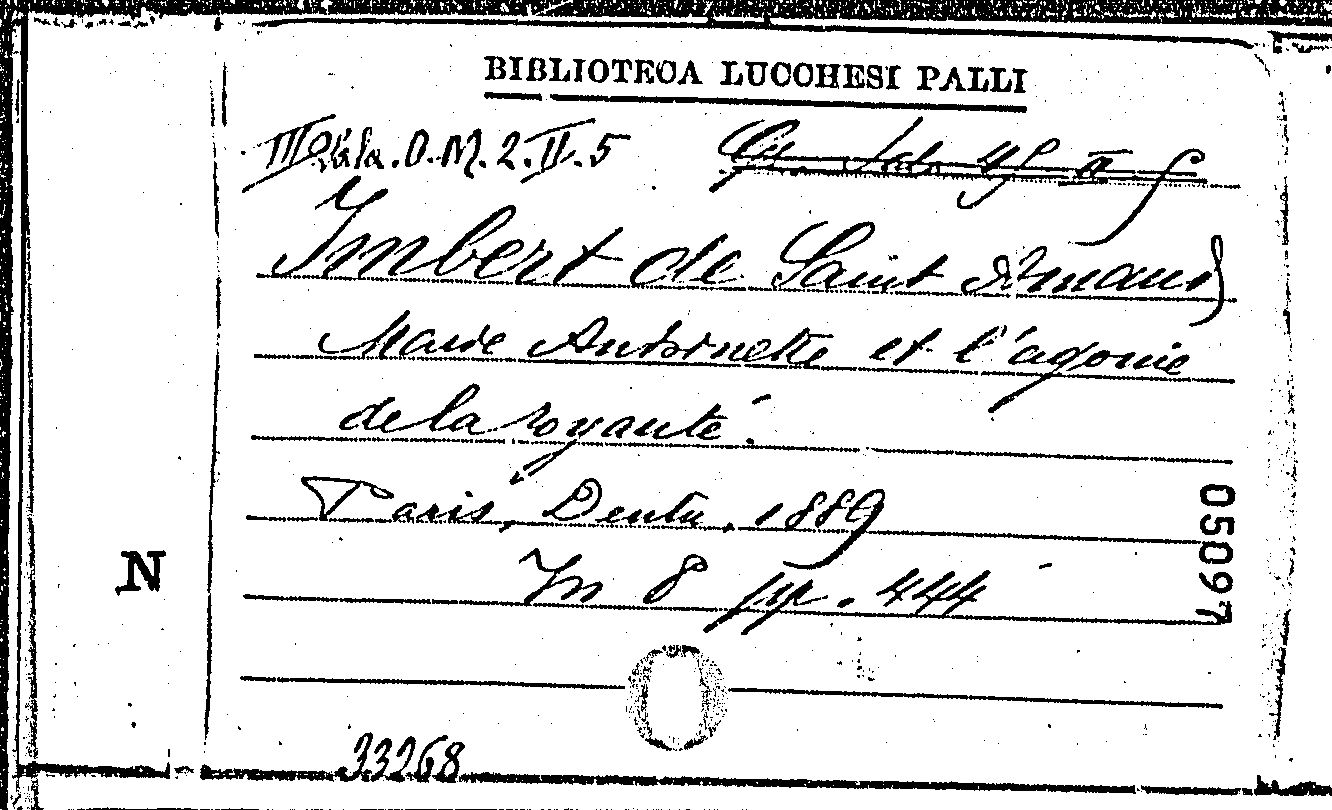 BIBLIOTECA LUCCHESI PALLI
III Sala. O. M. 2. II. 5
Imbert de Saint Amand
Marie Antoinette et l'agonie
de la royauté.
Paris, Dentu, 1889
In 8 pp. 444
05097
N
33268